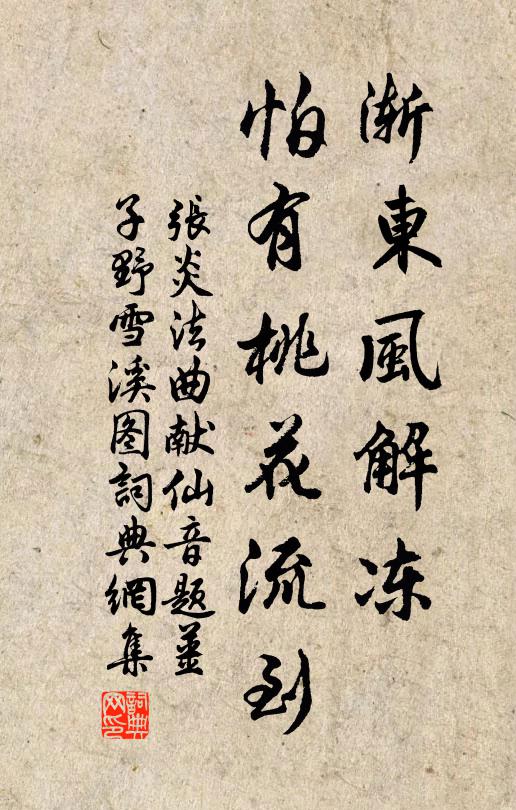 渐東風解冻
怕有桃花流到
張炎法曲献仙音题姜
子野雪溪图詞典網集
詞典
网印